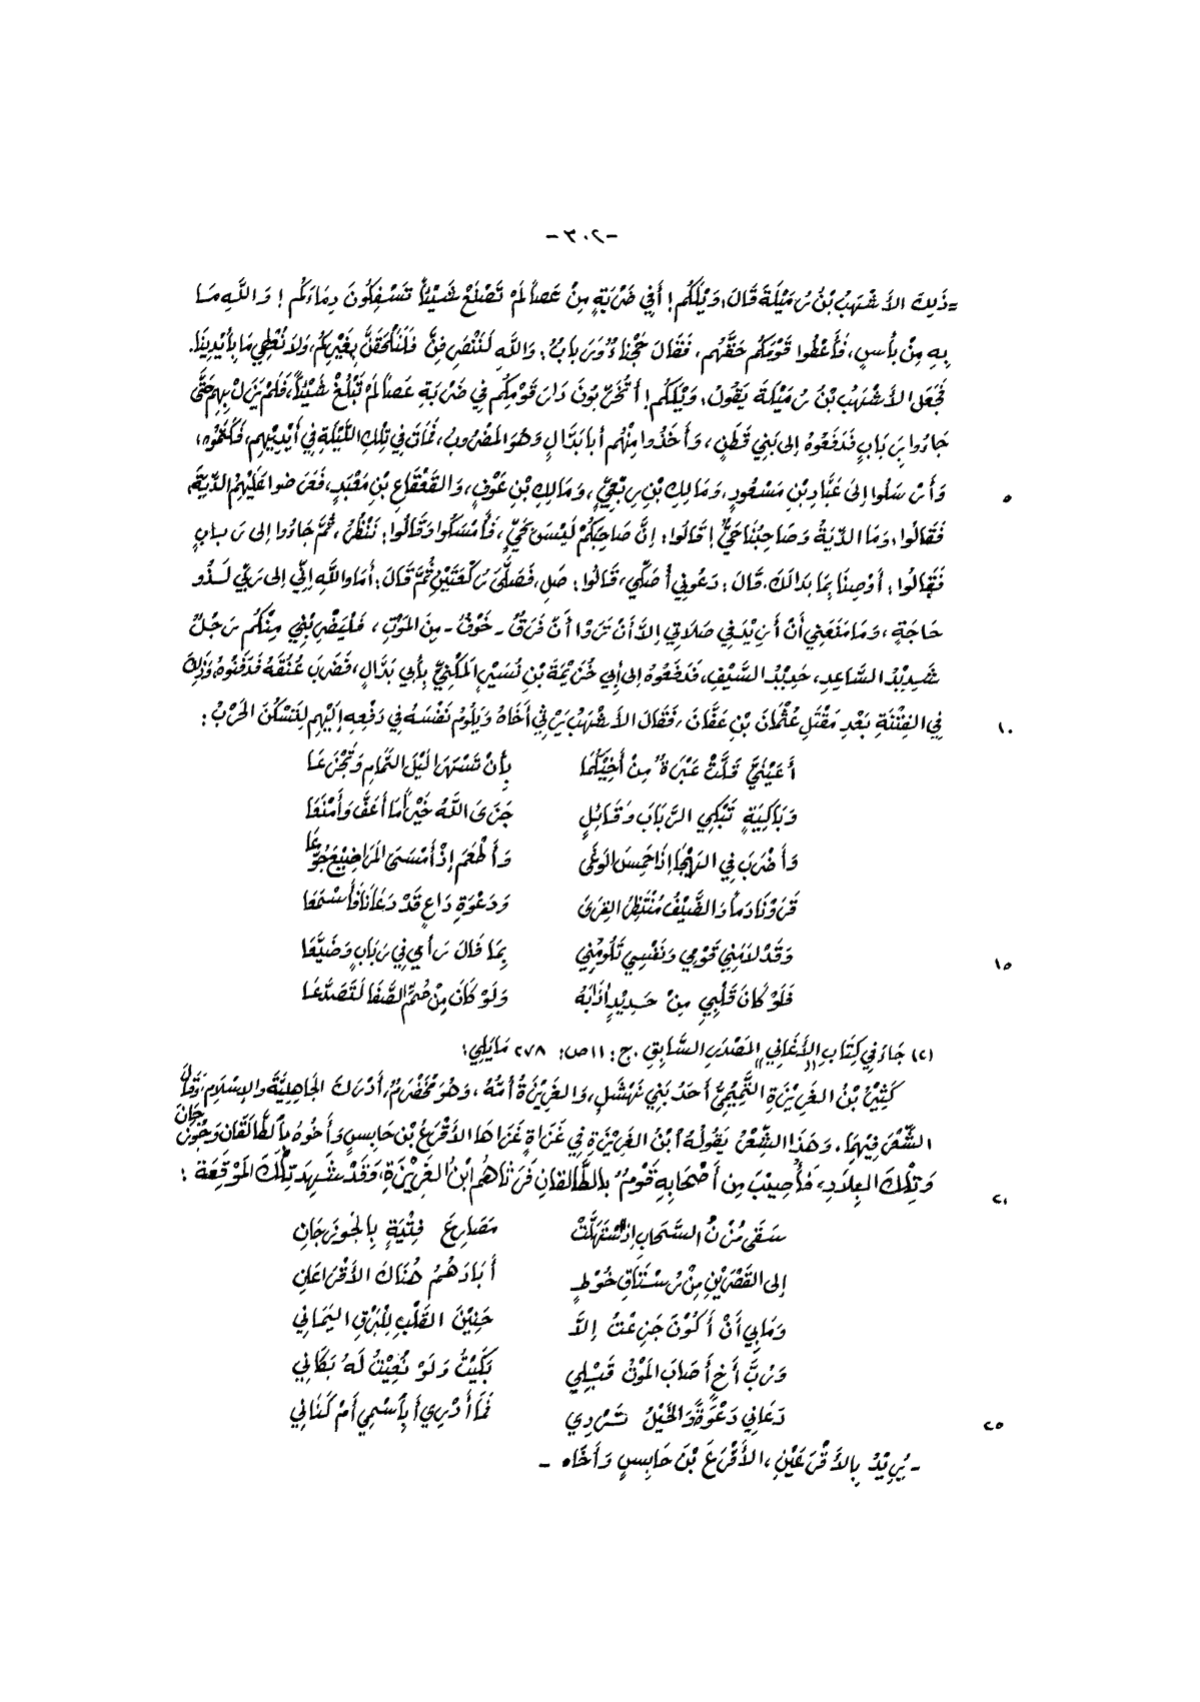 -٣٠٢-
=ذَلِكَ الأَشْهَبُ بْنُ رُمَيْلَةَ قَالَ: وَيْلَكُمْ! أَفِي ضَرْبَةٍ مِنْ عَصاً لَمْ تَصْنَعْ شَيْئاً تَسْفِكُونَ دِمَاءَكُمْ! وَاللَّهِ مَا
بِهِ مِنْ بَأْسٍ، فَأَعْطُوا قَوْمَكُمْ حَقَّهُم، فَقَالَ حَجْنَاءُ وَرَبَابُ: وَاللَّهِ لَنَنْصَرِفَنَّ فَلَنَلْحَقَنَّ بِغَيْرِكُمْ، وَلاَ نُعْطِي مَا بِأَيْدِينَا.
فَجَعَلَ الأَشْهَبُ بْنُ رُمَيْلَةَ يَقُولُ: وَيْلَكُم! أَتُخَرِّبُونَ دَارَ قَوْمِكُمْ فِي ضَرْبَةِ عَصاً لَمْ تَبْلُغْ شَيْئاً، فَلَمْ يَزَلْ بِهِمْ حَتَّى
جَاءُوا بِرَبَابٍ فَدَفَعُوهُ إلى بَنِي قَطَنٍ، وَأَخَذُوا مِنْهُم أَبَا بَدَّالٍ وَهُوَ المَضْرُوبُ، فَمَاتَ فِي تِلْكَ اللَّيْلَةِ فِي أَيْدِيهِم، فَكَتَمُوه،
وَأَرْسَلُوا إلَى عَبَّادِ بْنِ مَسْعُودٍ، وَمَالِكِ بْنِ رِبْعِيٍّ، وَمَالِكِ بْنِ عَوْفٍ، وَالقَعْقَاعِ بْنِ مَعْبَدٍ، فَعَرَضُوا عَلَيْهِمُ الدِّيَةَ، ٥
فَقَالُوا: وَمَا الدِّيَةُ وَصَاحِبُنَا حَيٌّ! قَالُوا: إنَّ صَاحِبَكُمْ لَيْسَ بِحَيٍّ، فَأَمْسَكُوا وَقَالُوا: نَنْظُرُ، ثُمَّ جَاءُوا إلى رَبابٍ
فَقَالُوا: أَوْصِنَا بِمَا بَدَا لَكَ. قَالَ: دَعُونِي أُصَلِّي، قَالُوا: صَلِّ، فَصَلَّى رَكْعَتَيْنِ ثُمَّ قَالَ: أَمَا وَاللَّهِ إنِّي إلى رَبِّي لَذُو
حَاجَةٍ، وَمَا مَنَعَنِي أَنْ أَزِيْدَ فِي صَلاَتِي إلاَّ أَنْ تَرَوْا أَنَّ فَرَقٌ - خَوْفٌ - مِنَ المَوْتِ، فَلْيَضْرِبْنِي مِنْكُم رَجُلٌ
شَدِيْدُ السَّاعِدِ، حَدِيْدُ السَّيْفِ، فَدَفَعُوهُ إلى أَبِي خُزَيْمَةَ بْنِ نُسَيْرٍ المَكْنِيِّ بِأَبِي بَدَّالٍ، فَضَرَبَ عُنُقَهُ فَدَفَنُوهُ، وَذَلِكَ
فِي الفِتْنَةِ بَعْدِ مَقْتَلِ عُثْمَانَ بْنِ عَفَّانَ، فَقَالَ الأَشْهَبُ يَرْثِي أَخَاهُ وَيَلُومُ نَفْسَهُ فِي دَفْعِهِ إلَيْهِم لِتَسْكُنَ الحَرْبُ: ١٠
أَعَيْنَيَّ قَلَّتْ عَبْرَةٌ مِنْ أَخِيْكُمَا بِأَنْ تَسْهَرَا لَيْلَ التَّمَامِ وَتَجْزَعَا
وَبَاكِيَةٍ تَبْكِي الرَّبَابَ وَقَائِلٍ جَزَى اللَّهُ خَيْراً مَا أَعَفَّ وَأَمْنَعَا
وَأَضْرَبَ فِي الهَيْجَا إذَا حَمِسَ الوَغَى وَأَطْعَمَ إذْ أَمْسَى المَرَاضِيْعُ جُوَّعَا
قَرَوْنَا دَماً وَالضَّيْفُ مُنْتَظِرُ القِرَى وَدَعْوَةِ دَاعٍ قَدْ دَعَانَا فَأَسْمَعَا
وَقَدْ لاَمَنِي قَوْمِي وَنَفْسِي تَلُومُنِي بِمَا فَالَ رَأْيِي فِي رَبَابٍ وَضَيَّعَا ١٥
فَلَوْ كَانَ قَلْبِي مِنْ حَدِيْدٍ أَذَابَهُ وَلَوْ كَانَ مِنْ صُمِّ الصَّفَا لَتَصَدَّعَا
(٢) جَاءَ فِي كِتَابِ الأَغَانِي المَصْدَرِ السَّابِقِ. ج: ١١ ص: ٢٧٨ مَا يَلِي:
كَثِيْرُ بْنُ الغَرِيْزَةِ التَّمِيْمِيُّ أَحَدُ بَنِي نَهْشَلٍ، وَالغَرِيْزَةُ أُمُّهُ، وَهُوَ مُخَضْرَمٌ، أَدْرَكَ الجَاهِلِيَّةَ وَالإسْلاَمَ، وَقَالَ
الشِّعْرَ فِيْهِمَا. وَهَذَا الشِّعْرُ يَقُولُهُ ابْنُ الغَرِيْزَةِ فِي غَزَاةٍ غَزَاهَا الأَقْرَعُ بْنُ حَابِسٍ وَأَخُوهُ بِالطَّالَقَانِ وَجُوْزَجَانَ
وَتِلْكَ البِلاَدِ، فَأُصِيْبَ مِن أَصْحَابِهِ قَوْمٌ بِالطَّالَقَانِ فَرَثَاهُم ابْنُ الغَرِيْزَةِ، وَقَدْ شَهِدَ تِلْكَ المَوْقِعَةَ: ٢١
سَقَى مُزْنُ السَّحَابِ إذا اسْتَهَلَّتْ مَصَارِعَ فِتْيَةٍ بِالجُوزَجَانِ
إلى القَصْرَيْنِ مِنْ رُسْتَاقِ خُوْطٍ أَبَادَهُمُ هُنَاكَ الأَقْرَعَانِ
وَمَا بِي أَنْ أَكُوْنَ جَزِعْتُ إلاَّ حَنِيْنَ القَلْبِ لِلْبَرْقِ اليَمَانِي
وَرُبَّ أَخٍ أَصَابَ المَوْتُ قَبْلِي بَكَيْتُ وَلَوْ نُعِيْتُ لَهُ بَكَانِي
دَعَانِي دَعْوَةً وَالخَيْلُ تَرْدِي فَمَا أَدْرِي أَبِاسْمِي أَمْ كَنَانِي ٢٥
- يُرِيْدُ بِالأَقْرَعَيْنِ، الأَقْرَعَ بْنَ حَابِسٍ وَأَخَاه -